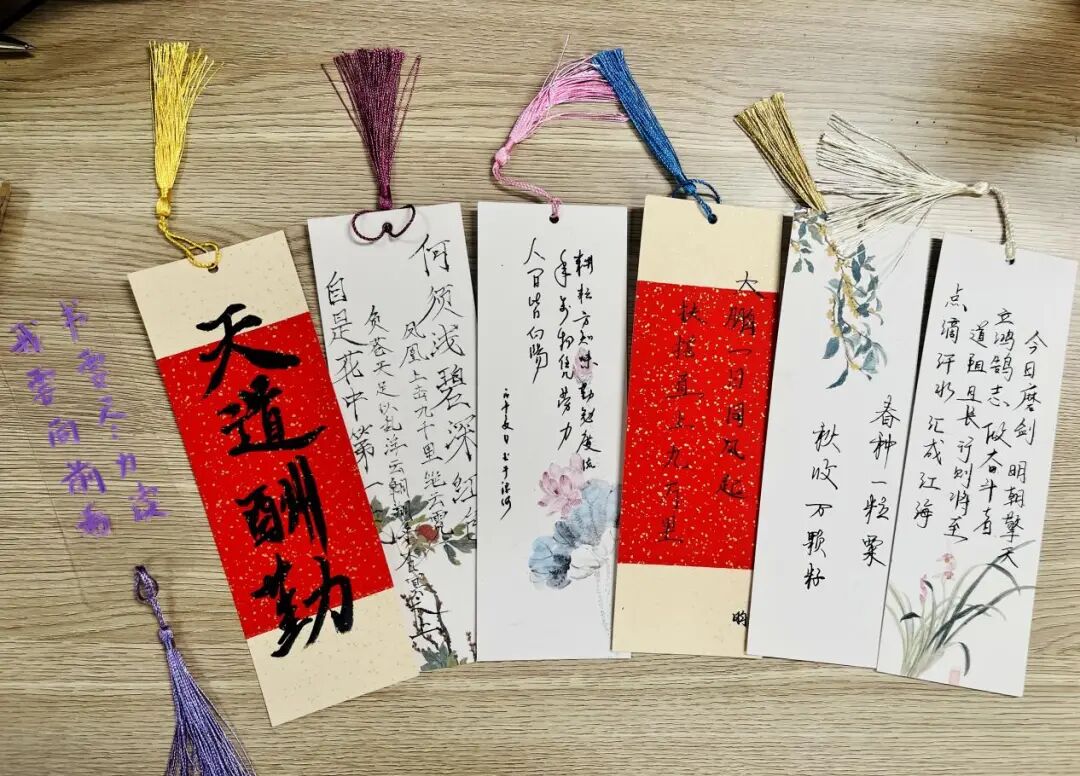 天道酬勤
何须浅碧深红色
凤凰上击九千里绝云霓
负苍天足以乱浮云翱翔乎杳冥之上
自是花中第一
耕耘方知味 勤勉度流
年 万物凭劳力
人间皆向阳
大鹏一日同风起
扶摇直上九万里
春种一粒粟
秋收万颗籽
今日磨剑 明朝擎天
立鸿鹄志 做奋斗者
道阻且长 行则将至
点滴汗水 汇成江海